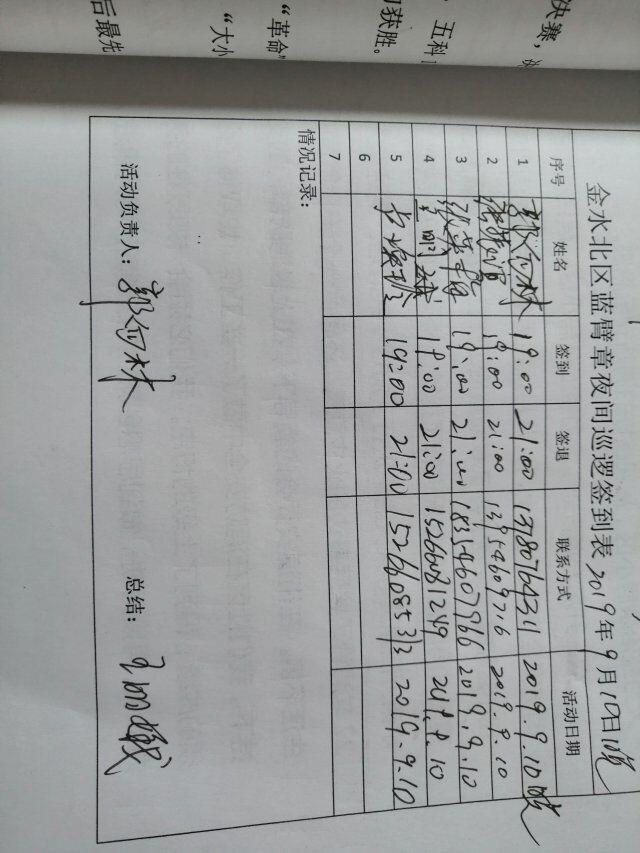 快寨，
，五科
习获胜。
“革命”
“大小
后最先
金水北区蓝臂章夜间巡逻签到表 2019年9月10日晚
序号 姓名 签到 签退 联系方式 活动日期
1 郭俭林 19:00 21:00 13780764311 2019.9.10晚
2 19:00 21:00 13954609716 2019.9.10
3 19:00 21:00 18354607966 2019.9.10
4 19:00 21:00 15266081249 2019.9.10
5 19:00 21:00 15266085313 2019.9.10
6
7
情况记录：
活动负责人： 郭俭林 总结：